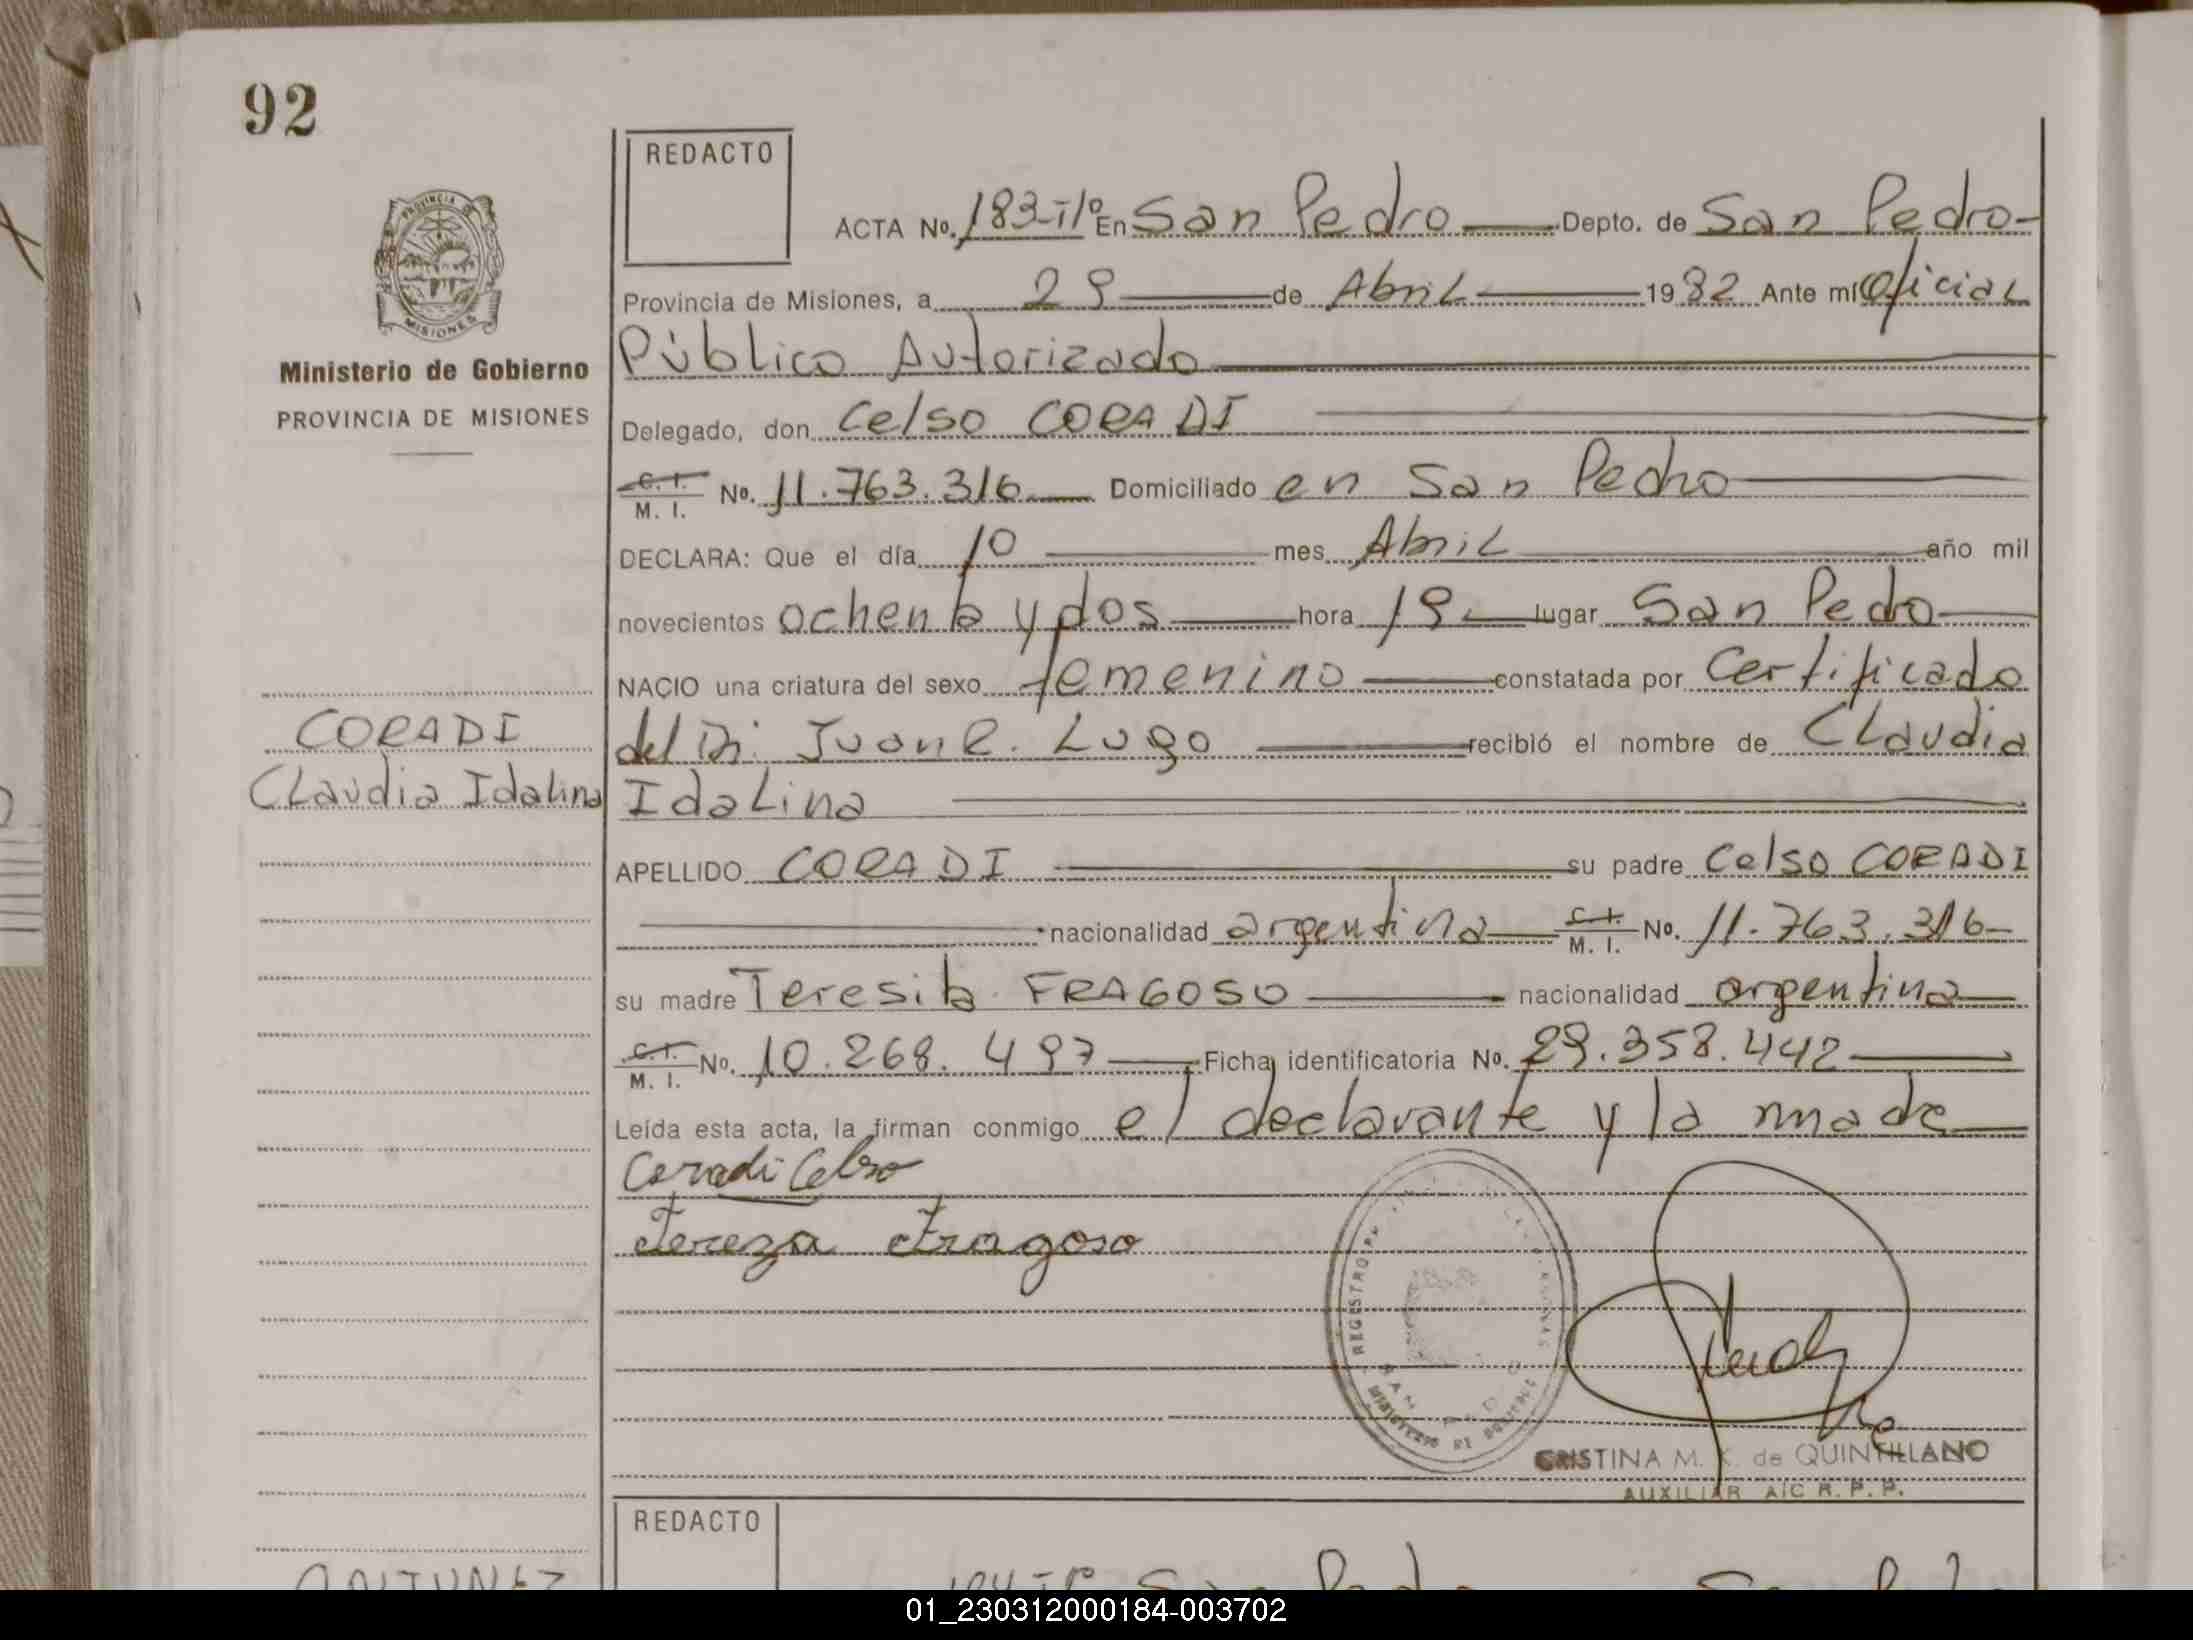 92
REDACTO
ACTA No. 183-Tº1º En San Pedro Depto. de San Pedro
PROVINCIA DE
MISIONES
Provincia de Misiones, a 29 de Abril 1982 Ante mí Oficial
Ministerio de Gobierno
Público Autorizado
PROVINCIA DE MISIONES
Delegado, don Celso CORADI
C. I.
M. I. No. 11.763.316 Domiciliado en San Pedro
DECLARA: Que el día 10 mes Abril año mil
novecientos ochenta y dos hora 19 lugar San Pedro
NACIO una criatura del sexo femenino constatada por Certificado
CORADI
del Dr. Juan R. Lugo recibió el nombre de Claudia
Claudia Idalina
Idalina
APELLIDO CORADI su padre Celso CORADI
nacionalidad argentina C. I. M. I. No. 11.763.316
su madre Teresita FRAGOSO nacionalidad argentina
C. I.
M. I. No. 10.268.497 Ficha identificatoria No. 29.358.442
Leída esta acta, la firman conmigo el declarante y la madre
Coradi Celso
Tereza Fragoso
REGISTRO
SAN PEDRO
MINISTERIO DE GOBIERNO
CRISTINA M. K. de QUINTILLANO
AUXILIAR A/C R. P. P.
REDACTO
01_230312000184-003702